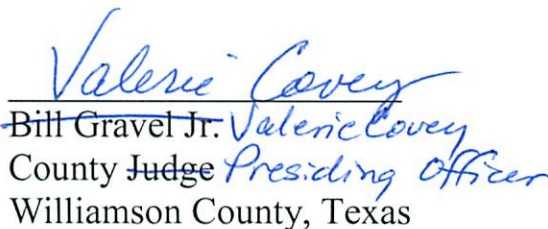 Valerie Covey
Bill Gravel Jr. Valerie Covey
County Judge Presiding Officer
Williamson County, Texas